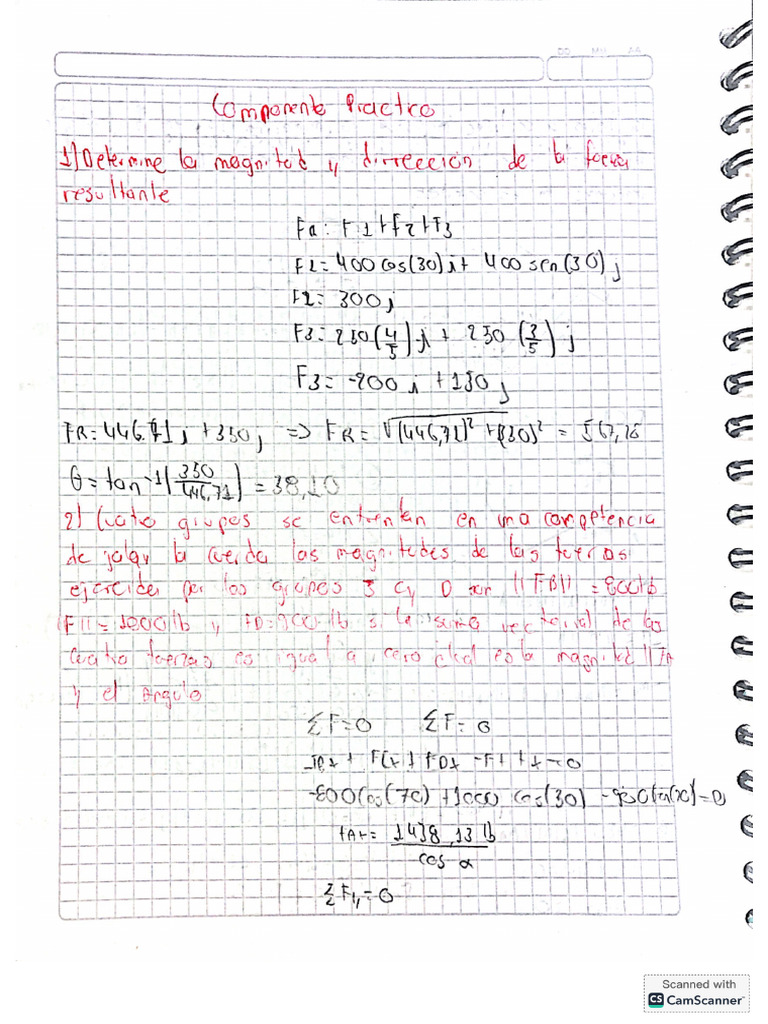 DD MM AA
Componente Practico
1) Determine la magnitud y dirrección de la fuerza
resultante
FR: F1+F2+F3
F1=400cos(30)i+ 400sen(30)j
F2= 300j
F3= 250(4/5)i + 250 (3/5) j
F3= -200i +150j
FR=446.71i +350j => FR= √(446,71)² +(350)² = 567,
θ= tan⁻¹(350/446,71) = 38,10
2) Cuatro grupos se enfrentan en una competencia
de jalar la cuerda las magnitudes de las fuerzas
ejercida por los grupos B C y D son ||FB|| = 800lb
F||=1000lb y FD=900 lb si la suma vectorial de las
cuatro fuerzas es igual a cero cual es la magnitud
y el angulo
ΣF=0 ΣF=0
-800Cos(70) +1000 cos(30)
1438,13 lb
cos α
ΣFy=0
Scanned with
CS CamScanner